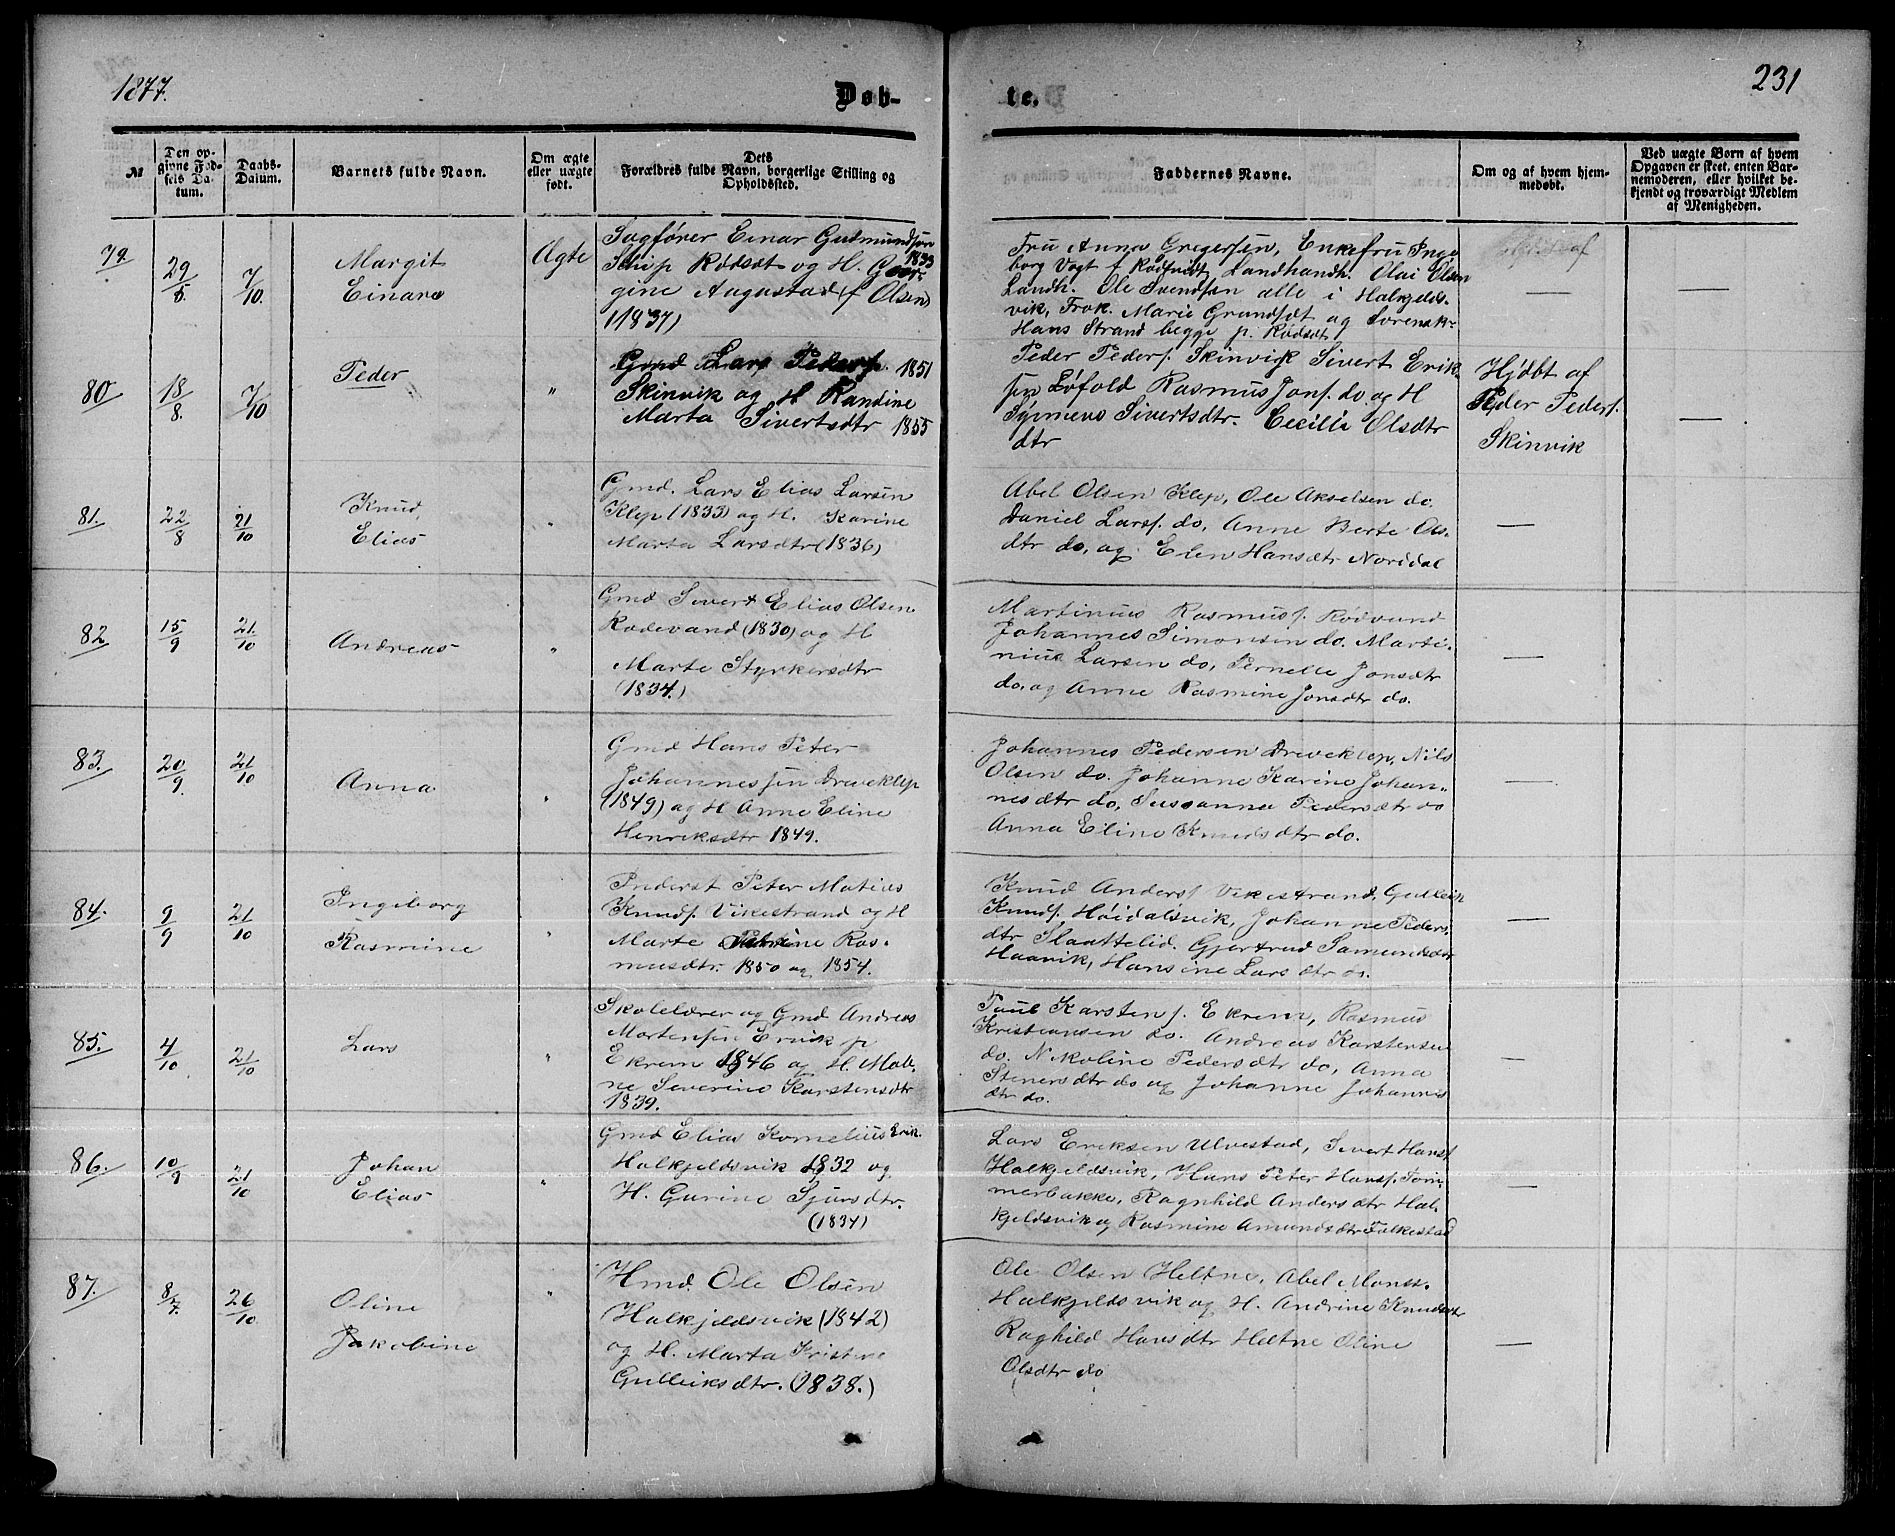 1877.
Døb-
te.
231
№
Den op-
givne Fød-
sels Da-
tum.
Daabs-
Datum.
Barnets fulde Navn.
Om ægte
eller uægte
født.
Dets
Forældres fulde Navn, borgerlige Stilling og
Opholdssted.
Faddernes Navne.
Om og af hvem hjem-
medøbt.
Ved uægte Børn af hvem
Opgaven er skeet, enten Bar-
nemoderen, eller hvilket be-
kjendt og troværdigt Medlem
af Menigheden.
79
29/8
7/10
Margit
Einara
Ægte
Sagfører Einar Gudmundsen
Schip Rødsæt og H. Geor- 1833
gine Augusta (f Olsen)
(1837)
Fru Anna Gregersen, Enkefru Inge
borg Vogt f Rødsæt, Landhandl. Olai Olsen
Landh. Ole Svendsen alle i Halkjelds-
vik, Frøk. Marie Grundsæt og Sorensk-
Hans Strand begge p. Rødsæt
—
—
80
18/8
7/10
Peder
"
Gmd Lars Peders. 1851
Skinvik og H Randine
Marta Sivertsdtr 1855
Peder Peders. Skinvik Sivert Erik-
sen Løfold Rasmus Jons. do. og H
Sivertsdtr. Cecilie Olsdtr
dtr
Hjdbt af
Peder Peders.
Skinvik
—
81.
22/8
21/10
Knud
Elias
"
Gmd. Lars Elias Larsen
Klep (1833) og H. Karine
Marta Larsdtr (1836)
Abel Olsen Klep, Ole Akselsen do.
Daniel Lars. do, Anne Berte Ols-
dtr do, og Elen Hansdtr Norddal
—
82
15/9
21/10
Andreas
"
Gmd Sivert Elias Olsen
Rødevand (1830) og H
Marte Styrkersdtr
(1834.)
Martinus Rasmus. Rødvand
Johannes Simonsen do. Marti-
nius Larsen do, Pernelle Jonsdtr
do. og Anne Rasmine Jonsdtr do.
—
83.
20/9
21/10
Anna
"
Gmd Hans Peter
Johannessen Dreveklep
(1849) og H Anne Eline
Henriksdtr 1849.
Johannes Pedersen Dreveklep, Nils
Olsen do. Johanne Karine Johan-
nesdtr do, Susanna Pedersdtr do
Anna Eline Knudsdtr do.
—
84.
9/9
21/10
Ingeborg
Rasmine
"
Inderst Peter Matias
Knuds. Vikestrand og H
Marte Petrine Ras-
musdtr. 1850 og 1854.
Knud Anders. Vikestrand, Gulleik
Knuds. Høidalsvik, Johanne Peders-
dtr Slaattelid. Gjertrud Samundsdtr
Haavik, Hansine Larsdtr do.
—
85.
4/10
21/10
Lars
"
Skolelærer og Gmd Andreas
Mortensen Ervik p
Ekrem 1846 og H. Mali-
ne Severine Karstensdtr
1839.
Paul Karstens. Ekrem, Rasmus
Kristiansen do. Andreas Karstensen
do. Nikoline Pedersdtr do, Anna
Stenersdtr do og Johanne Johannes
dtr do.
—
86.
10/9
21/10
Johan
Elias
"
Gmd Elias Kornelius Erik.
Halkjeldsvik 1832 og
H. Gurine Sjursdtr.
(1834)
Lars Eriksen Ulvestad, Sivert Hans.
Halkjeldsvik, Hans Peter Hans. Tøm-
merbakke, Ragnhild Andersdtr Hal-
kjeldsvik og Rasmine Amundsdtr Folkestad
—
87.
8/7.
26/10
Oline
Jakobine
"
Hmd. Ole Olsen
Halkjeldsvik (1842)
og H. Marta Kristine
Gulleiksdtr. (1838.)
Ole Olsen Heltne, Abel Mons.
Halkjeldsvik og H. Andrine Knudsdtr
Raghild Hansdtr Heltne Oline
Olsdtr do
—